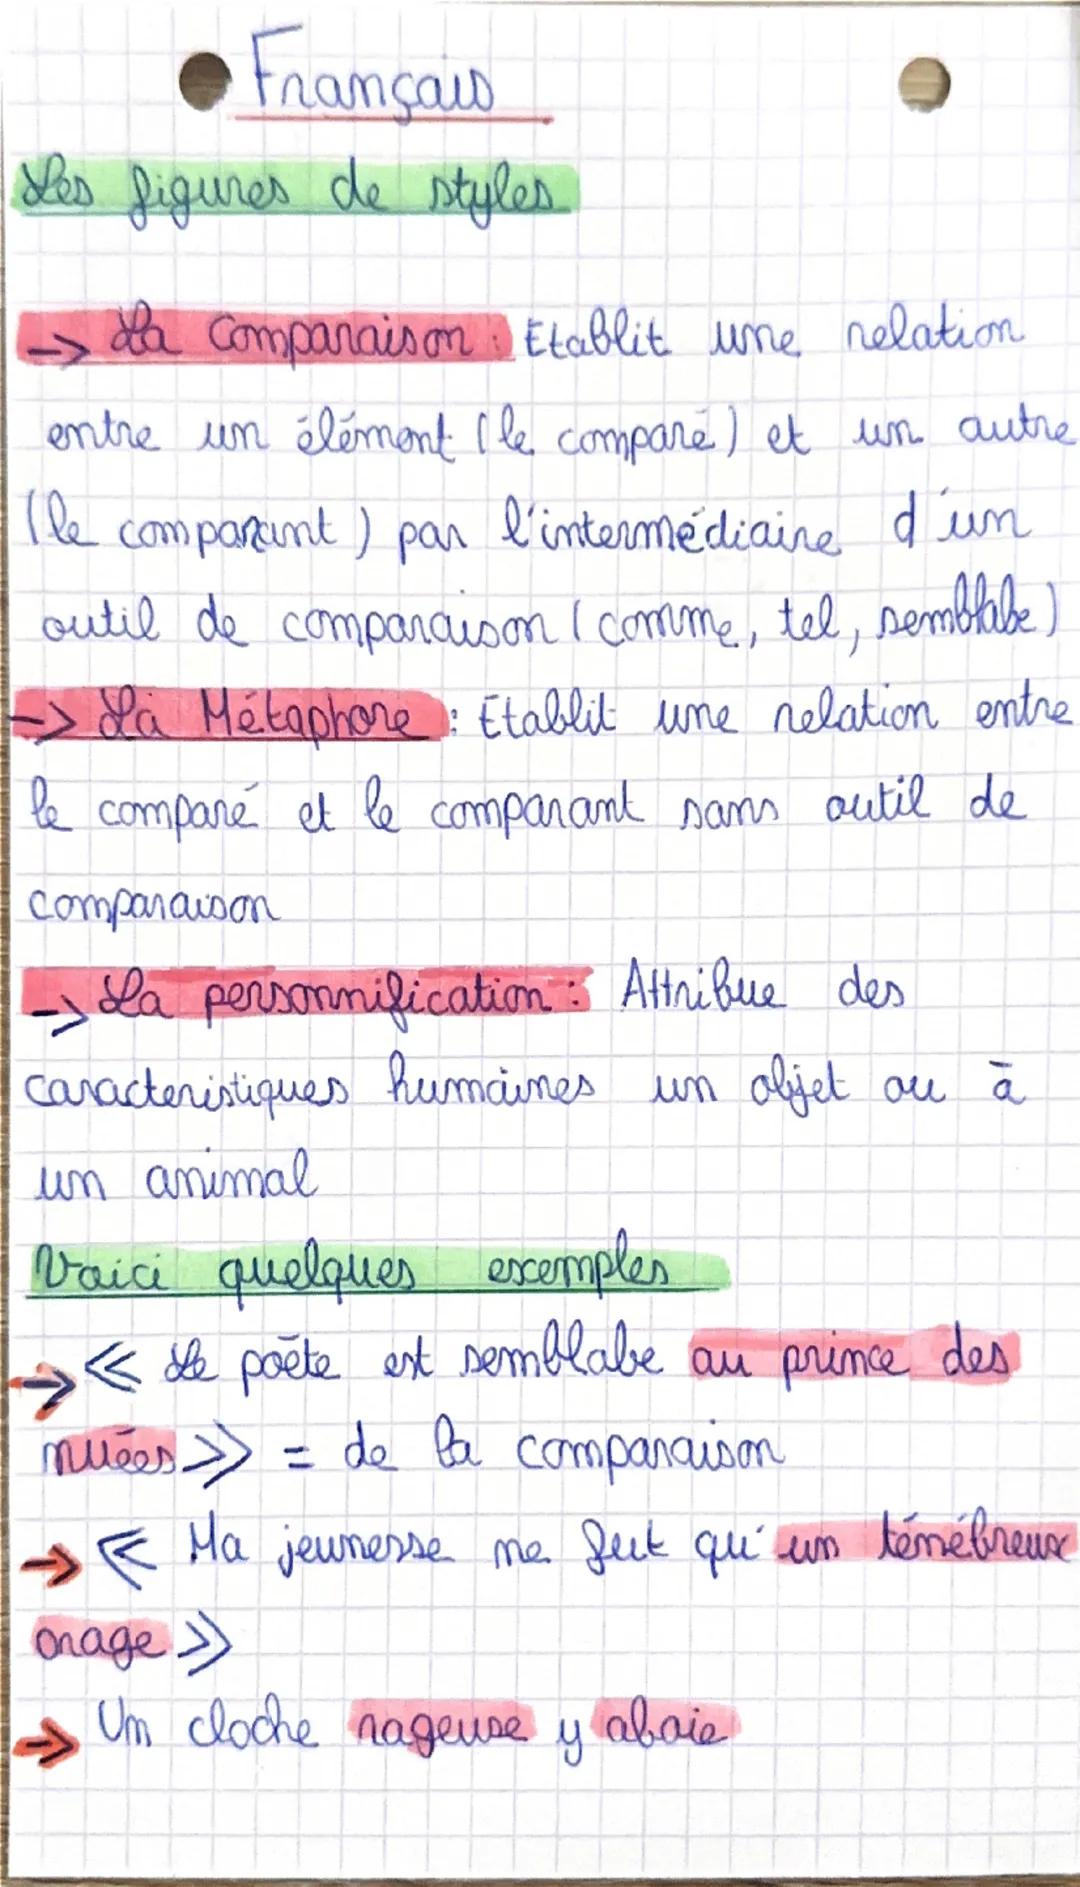 Français
Les figures de styles
-> La Comparaison : Etablit une relation
entre un élément (le comparé) et un autre
(le comparant) par l'intermédiaire d'un
outil de comparaison (comme, tel, semblabe)
-> La Métaphore : Etablit une relation entre
le comparé et le comparant sans outil de
comparaison
-> La personnification : Attribue des
caracteristiques humaines un objet ou à
un animal
Voici quelques exemples
→ « Le poëte est semblabe au prince des
nuées » = de la comparaison
→ « Ma jeunesse ne fut qu'un ténébreux
orage »
→ Un cloche rageuse y aboie